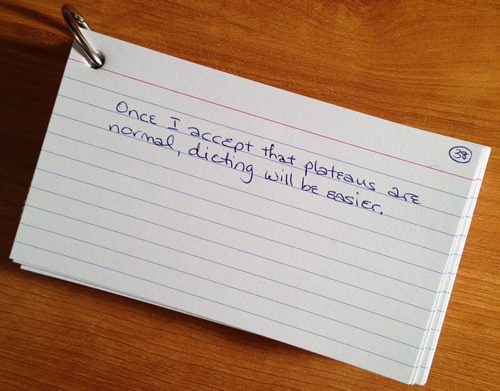 38
Once I accept that plateaus are
normal, dieting will be easier.